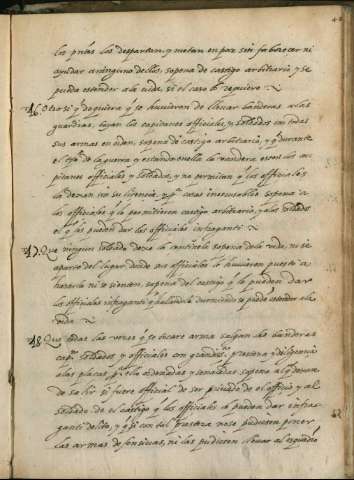 los pntes los despartan, y metan en paz sin faborecer ni
ayudar a ninguno dellos, sopena de castigo arbitrario y se
pueda estender a la vida si el caso lo requiere.
46. Otro si y doquiera q̃ se huuieren de lleuar banderas a las
guardias, vayan los capitanes officiales, y soldados con todas
sus armas en orden, sopena de castigo arbitrario, y q̃ durante
el de la guerra y estando en ella la vandera, esten los ca
pitanes officiales y soldados, y no permitan q̃ los officiales
la dexen sin su licencia, y sopena a
los officiales q̃ lo permitieren castigo arbitrario, y a los soldados
el q̃ les pueden dar los officiales infraganti.
47. Que ningun soldado dexe la centinela sopena de la vida, ni se
aparte del lugar donde sus officiales le huuieren puesto a
hazerla ni se sienten, sopena del castigo q̃ le pueden dar
los officiales infraganti y hallandole durmiendo se puede estender a la
vida
48. Que todas las vezes q̃ se tocare arma salgan las banderas
capes soldados y officiales con grandes. presteza y diligencia
a las plazas para ello ordenadas y señaladas sopena al q̃ dexare
de salir si fuere official de ser priuado de el officio, y al
soldado de el castigo q̃ los officiales le pueden dar infra
ganti delito, y q̃ si con tal presteza no se pudieren poner
las armas defensiuas, ni las pudieren lleuar al esquadrõ